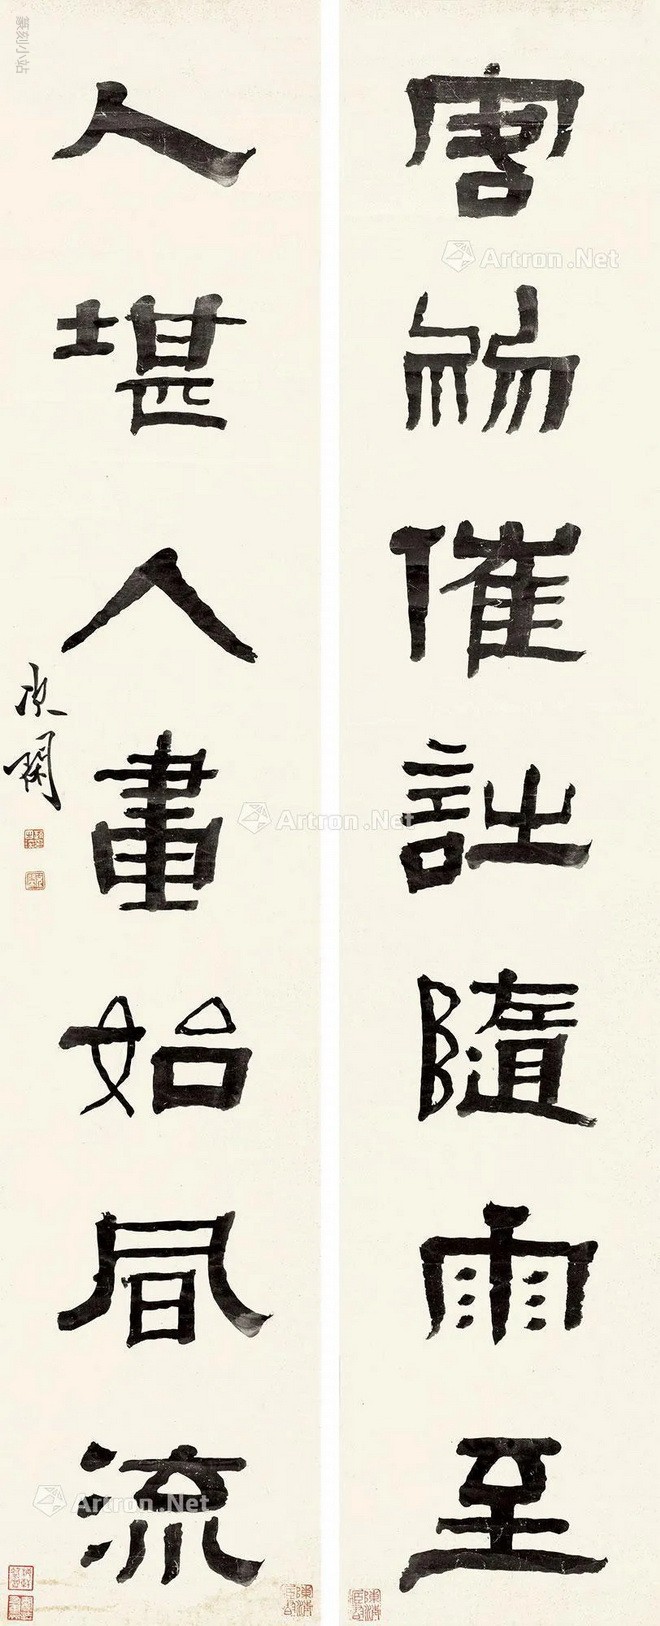 催詩隨雨至
人堪入畫始風流
次閑
篆刻小站
Artron.Net
Artron.Net
Artron.Net